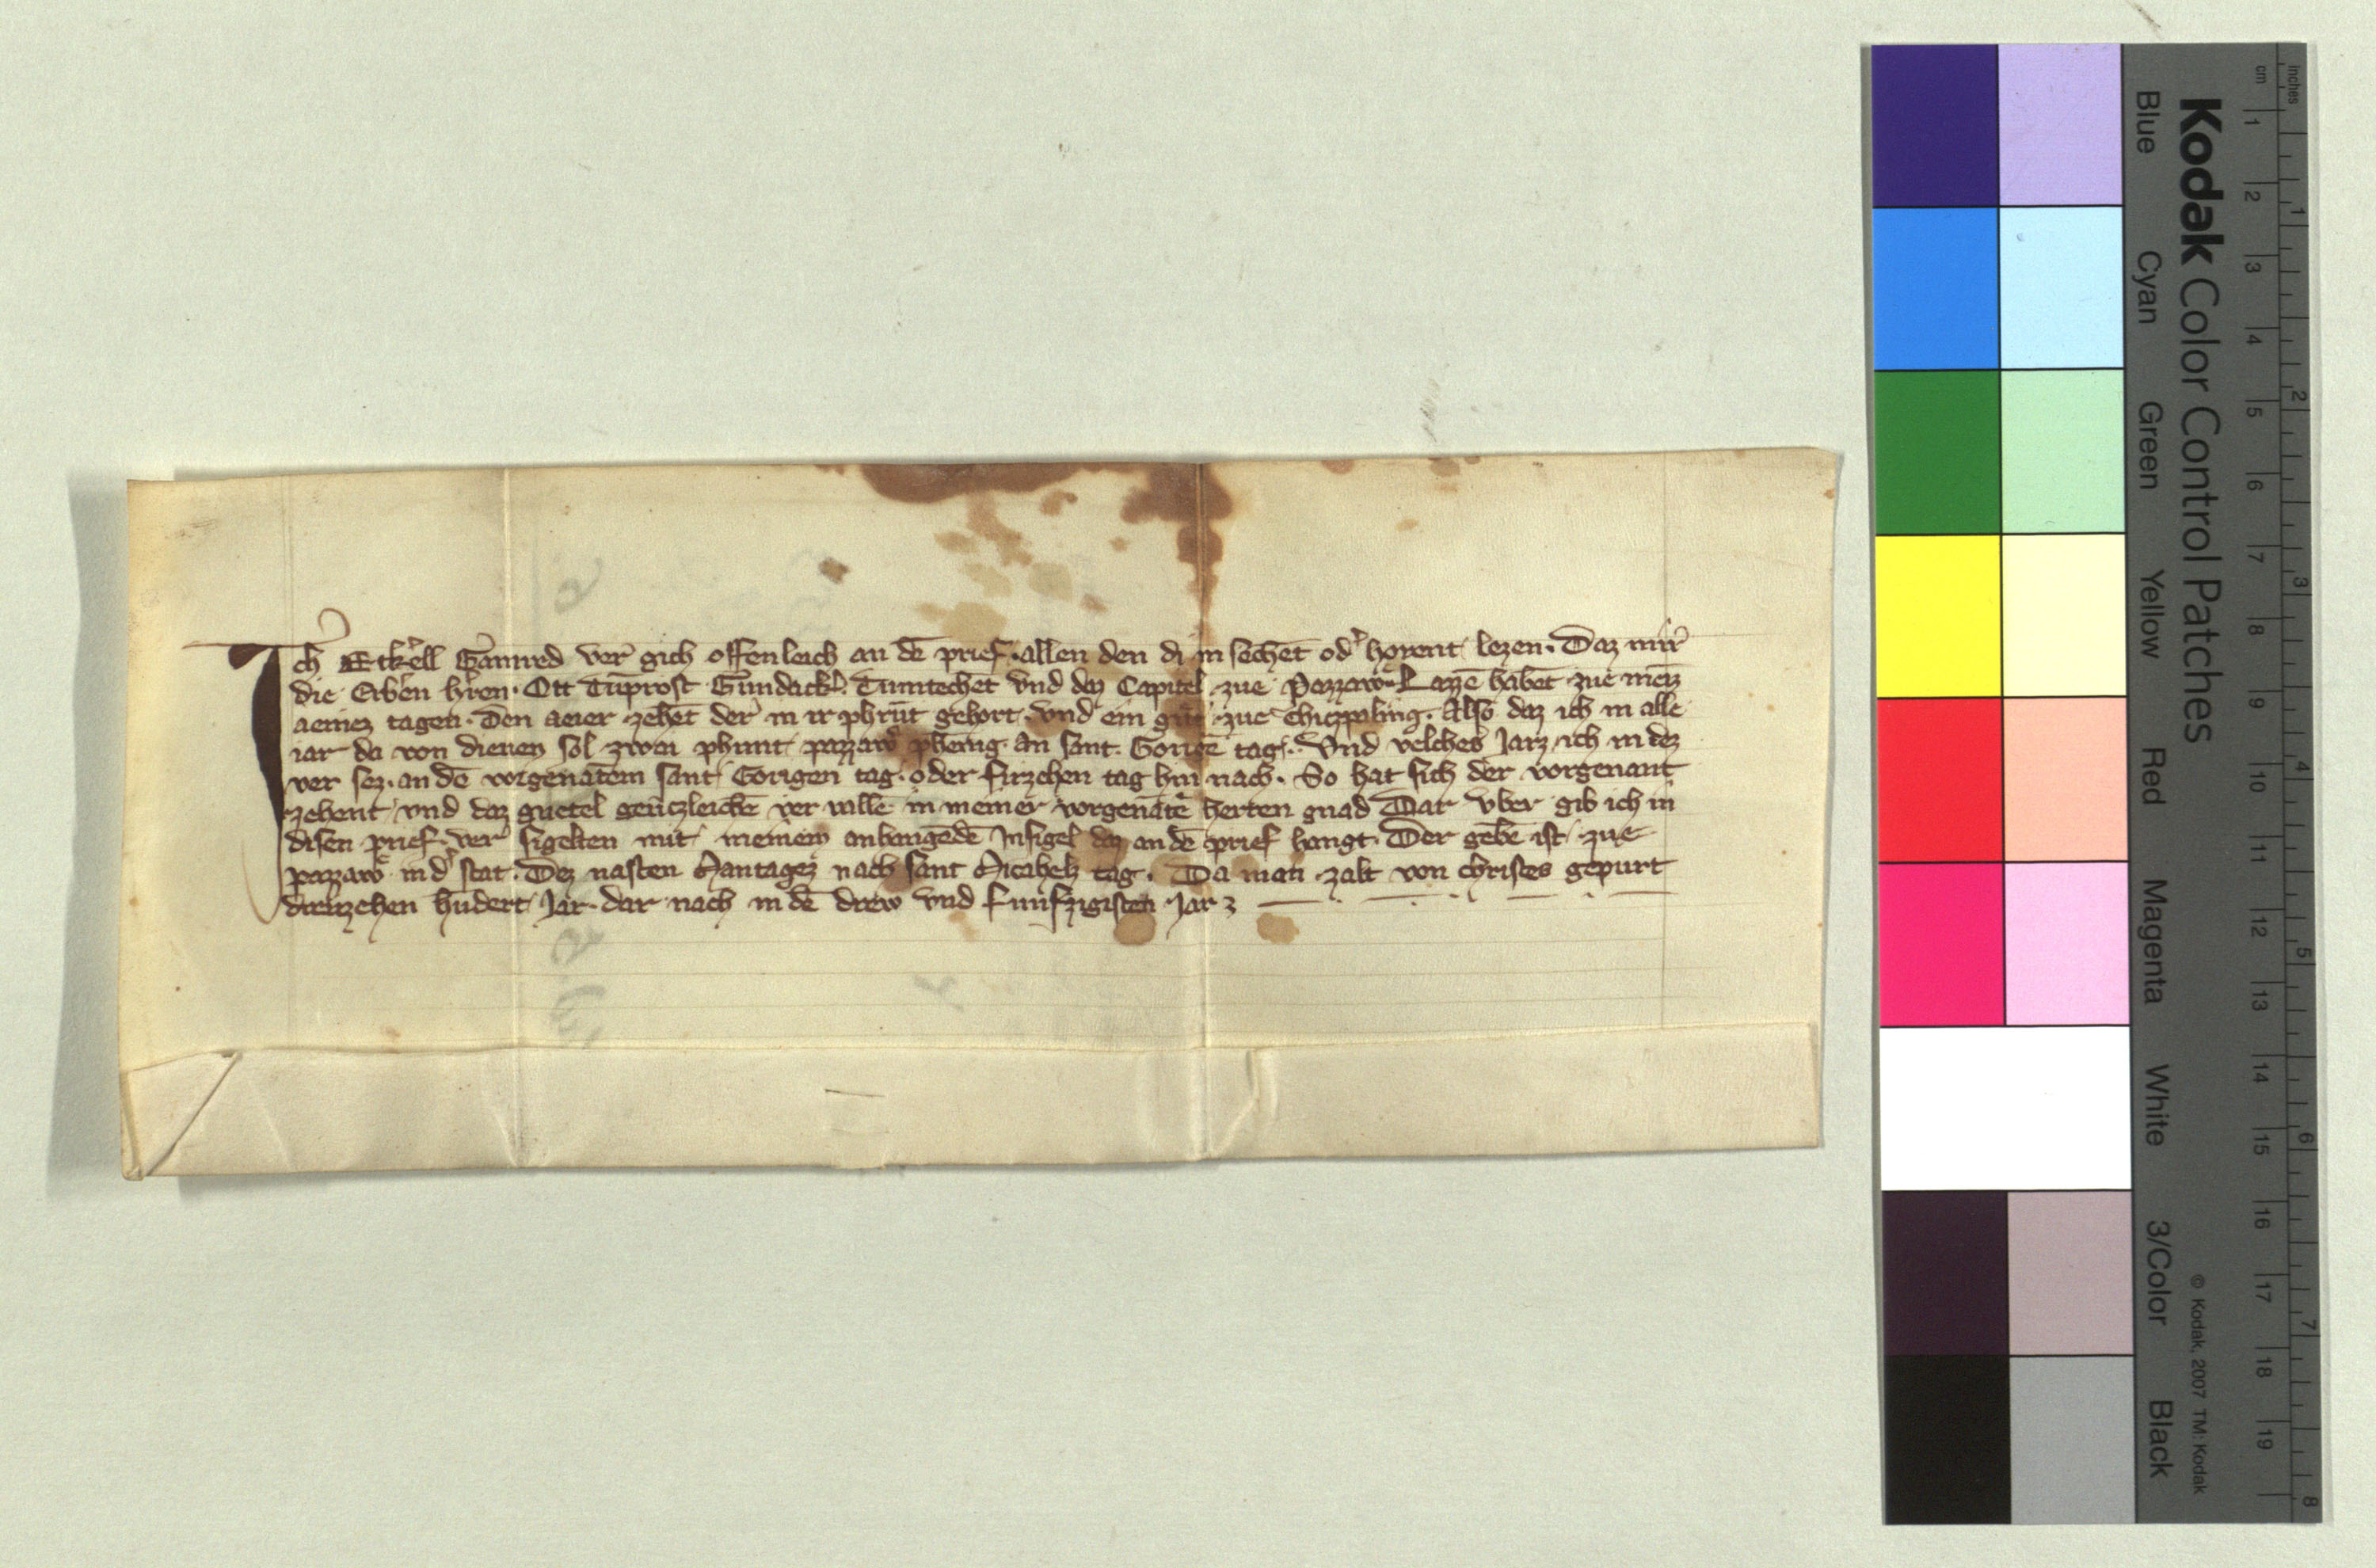 Ich Etkêll Gamred ver gich offenleich an dē prief · allen den di in sechēt od' horent lezen · Daz mir
die Erbern h'ren · Ott Tūprost Gundack'. Tumtechet vnd daz Capitel zue Pazzaw · Lazzē habēt zue meīz
aeniez tagen · Den aeier zehēt der in ir phrūt gehort · vnd ein gūt zue Chieppling · Also daz ich in alle
iar da von dienen sol zwai phunt pazzaw' phēnig · an sant · Gorigē tag · Vnd velches Jarz ich in dez
ver sez · an dē vorgenātem sant Gorigen tag · oder firzehen tag hin nach · So hat sich der vorgenant
zehent vnd daz guetel genczleichē ver vallē in meiner vorgenātē herren gnad Dar vber gib ich in
disen prief · ver sigelten mit meinem anhangēdē Insigel daz an dē prief hangt · Der gebē ist zue
pazzaw in d' stat · Dez nasten Mantagez nach sant Micahelz tag · Da man zalt von christes gepurt
dreuzehen hūdert Jar · dar nach in dē drew vnd funfzigisten Jar
Kodak Color Control Patches
Blue Cyan Green Yellow Red Magenta White 3/Color Black
© Kodak, 2007 TM: Kodak
cm 1 2 3 4 5 6 7 8 9 10 11 12 13 14 15 16 17 18 19
Inches 1 2 3 4 5 6 7 8